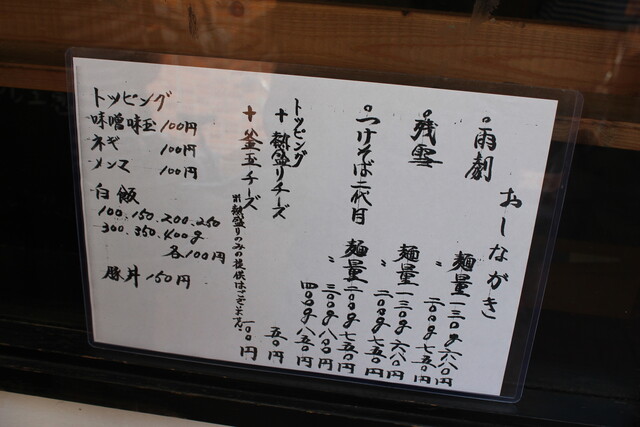 おしながき
。雨劇 麺量一三〇g六八〇円
〃 二〇〇g七五〇円
。残雪 麺量一三〇g六八〇円
〃 二〇〇g七五〇円
。つけそば二代目 麺量二〇〇g七五〇円
〃 三〇〇g八〇〇円
四〇〇g八五〇円
トッピング
+熱盛りチーズ 五〇円
+釜玉チーズ 一〇〇円
トッピング
味噌味玉 100円
ネギ 100円
メンマ 100円
白飯
100.150.200.250
300.350.400g
各100円
豚丼 150円